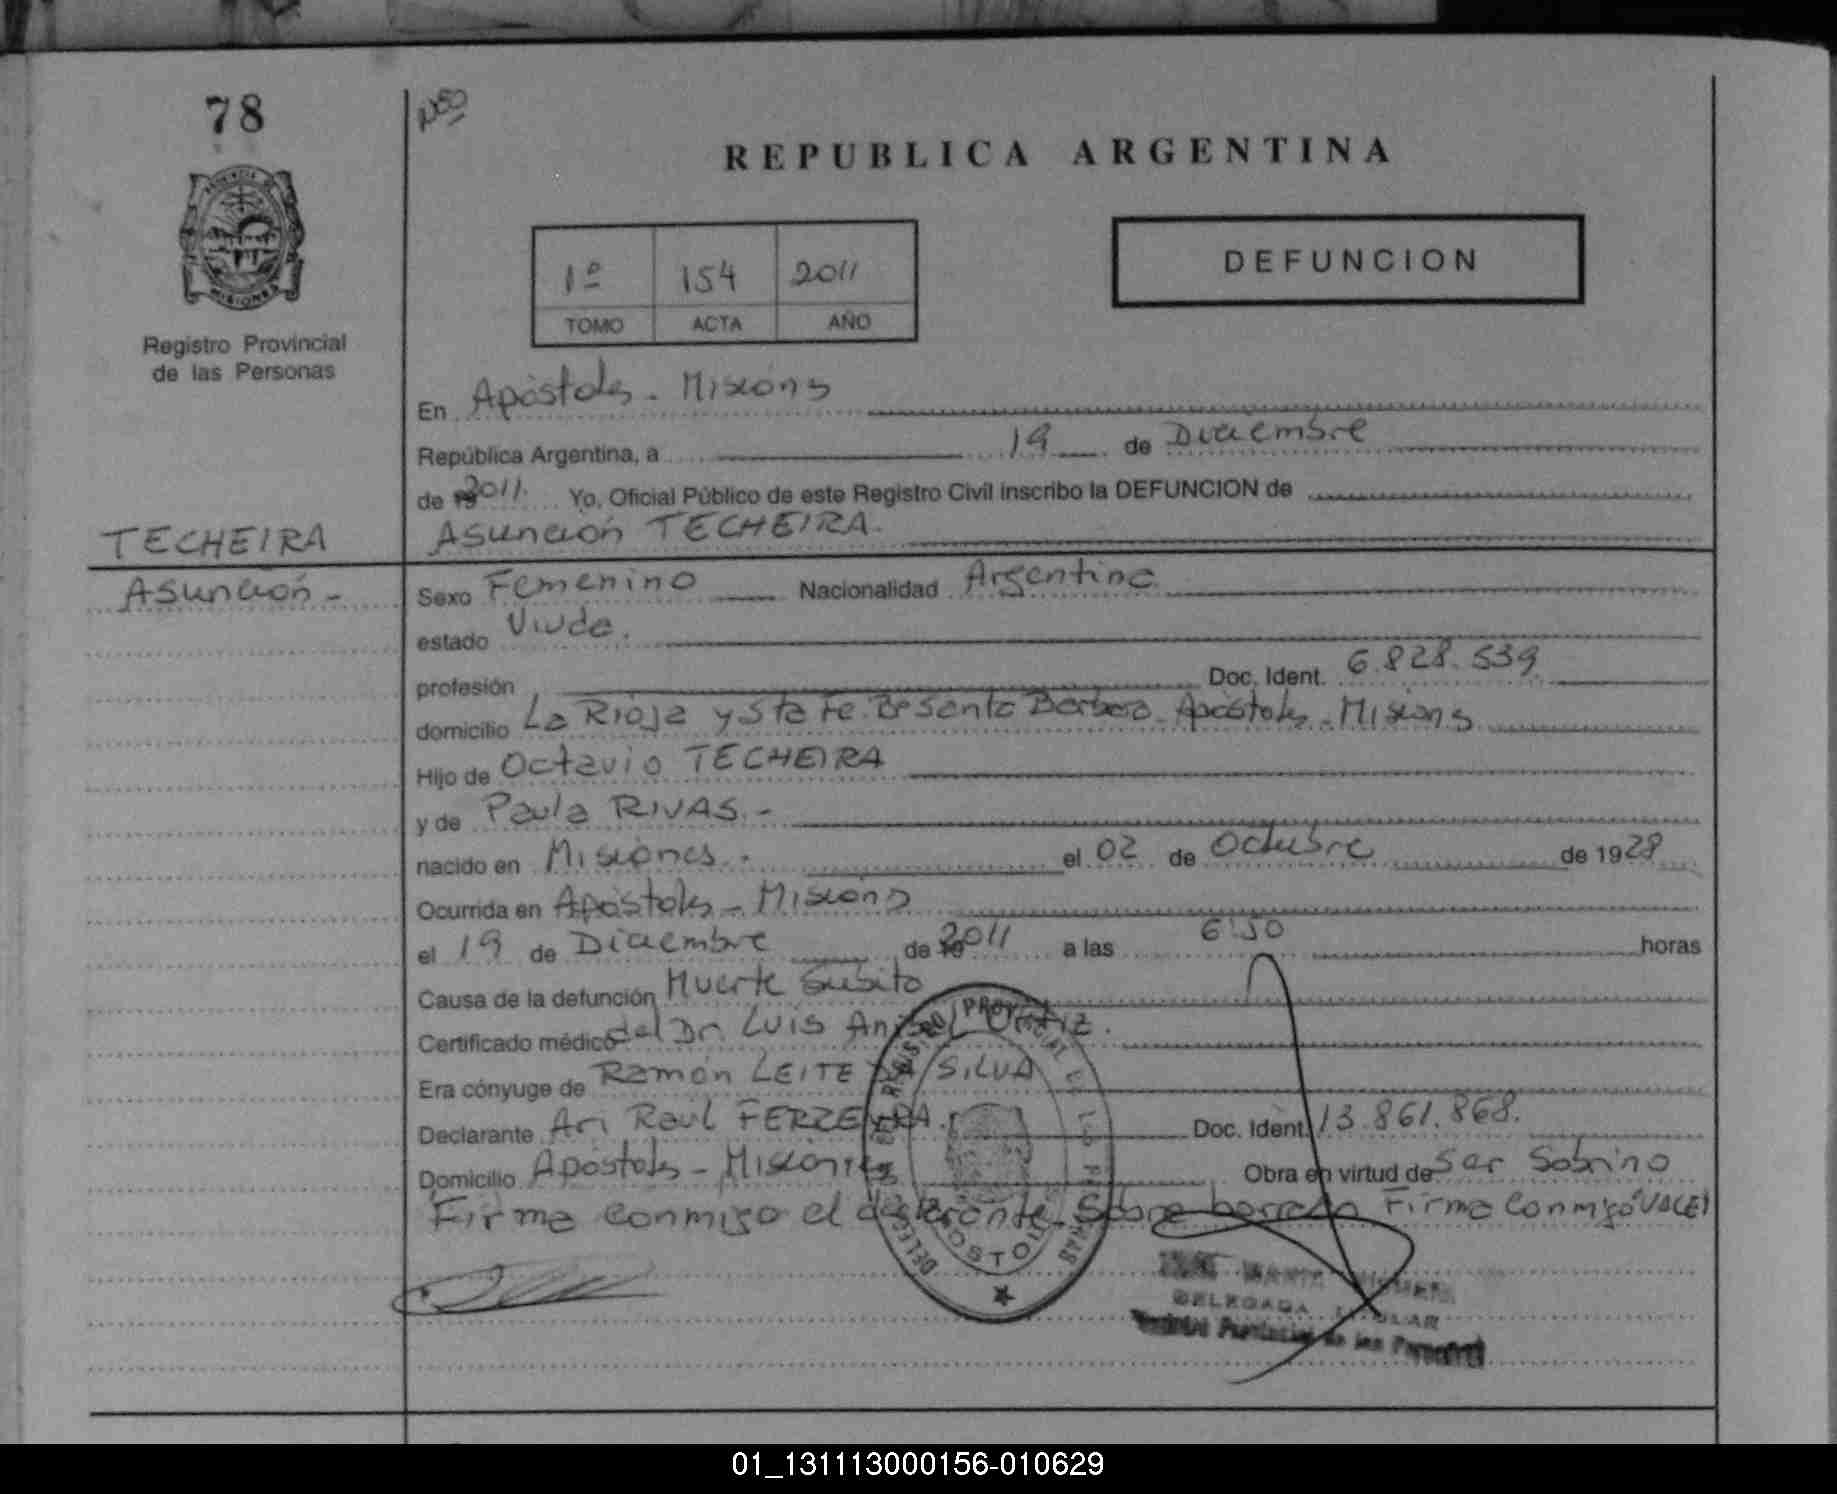 78
REPUBLICA ARGENTINA
1º 154 2011
TOMO ACTA AÑO
DEFUNCION
PROVINCIA DE
MISIONES
Registro Provincial
de las Personas
En Apóstoles - Misiones
República Argentina, a 19 de Diciembre
de 19 2011. Yo, Oficial Público de este Registro Civil inscribo la DEFUNCION de
TECHEIRA
Asunción TECHEIRA.
Asunción -
Sexo Femenino Nacionalidad Argentina
estado Viuda.
profesión Doc. Ident. 6.828.539
domicilio La Rioja y Sta Fe. Bº Santa Bárbara - Apóstoles - Misiones
Hijo de Octavio TECHEIRA
y de Paula RIVAS. -
nacido en Misiones. el 02 de Octubre de 1928
Ocurrida en Apóstoles - Misiones
el 19 de Diciembre de 19 2011 a las 6:50 horas
Causa de la defunción Muerte Súbita
Certificado médico del Dr. LUIS Anibal Ortiz.
Era cónyuge de Ramón LEITE DA SILVA
Declarante Ari Raúl FERREYRA. Doc. Ident. 13.861.868.
Domicilio Apóstoles - Misiones Obra en virtud de Ser Sobrino
Firma conmigo el declarante. Sobre borrado Firma Conmigo VALE)
REGISTRO PROVINCIAL DE LAS PERSONAS
APOSTOLES
DELEGADA TITULAR
Registro Provincial de las Personas
01_131113000156-010629